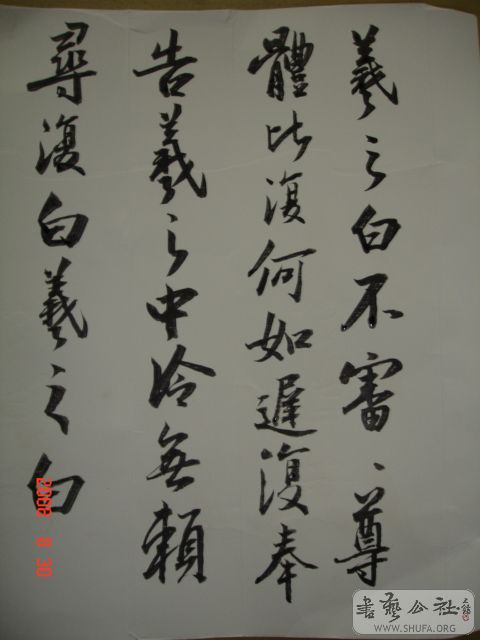 羲之白不審、尊
體比復何如遲復奉
告羲之中冷無賴
尋復白羲之白
2008 8 30
書藝公社
WWW.SHUFA.ORG